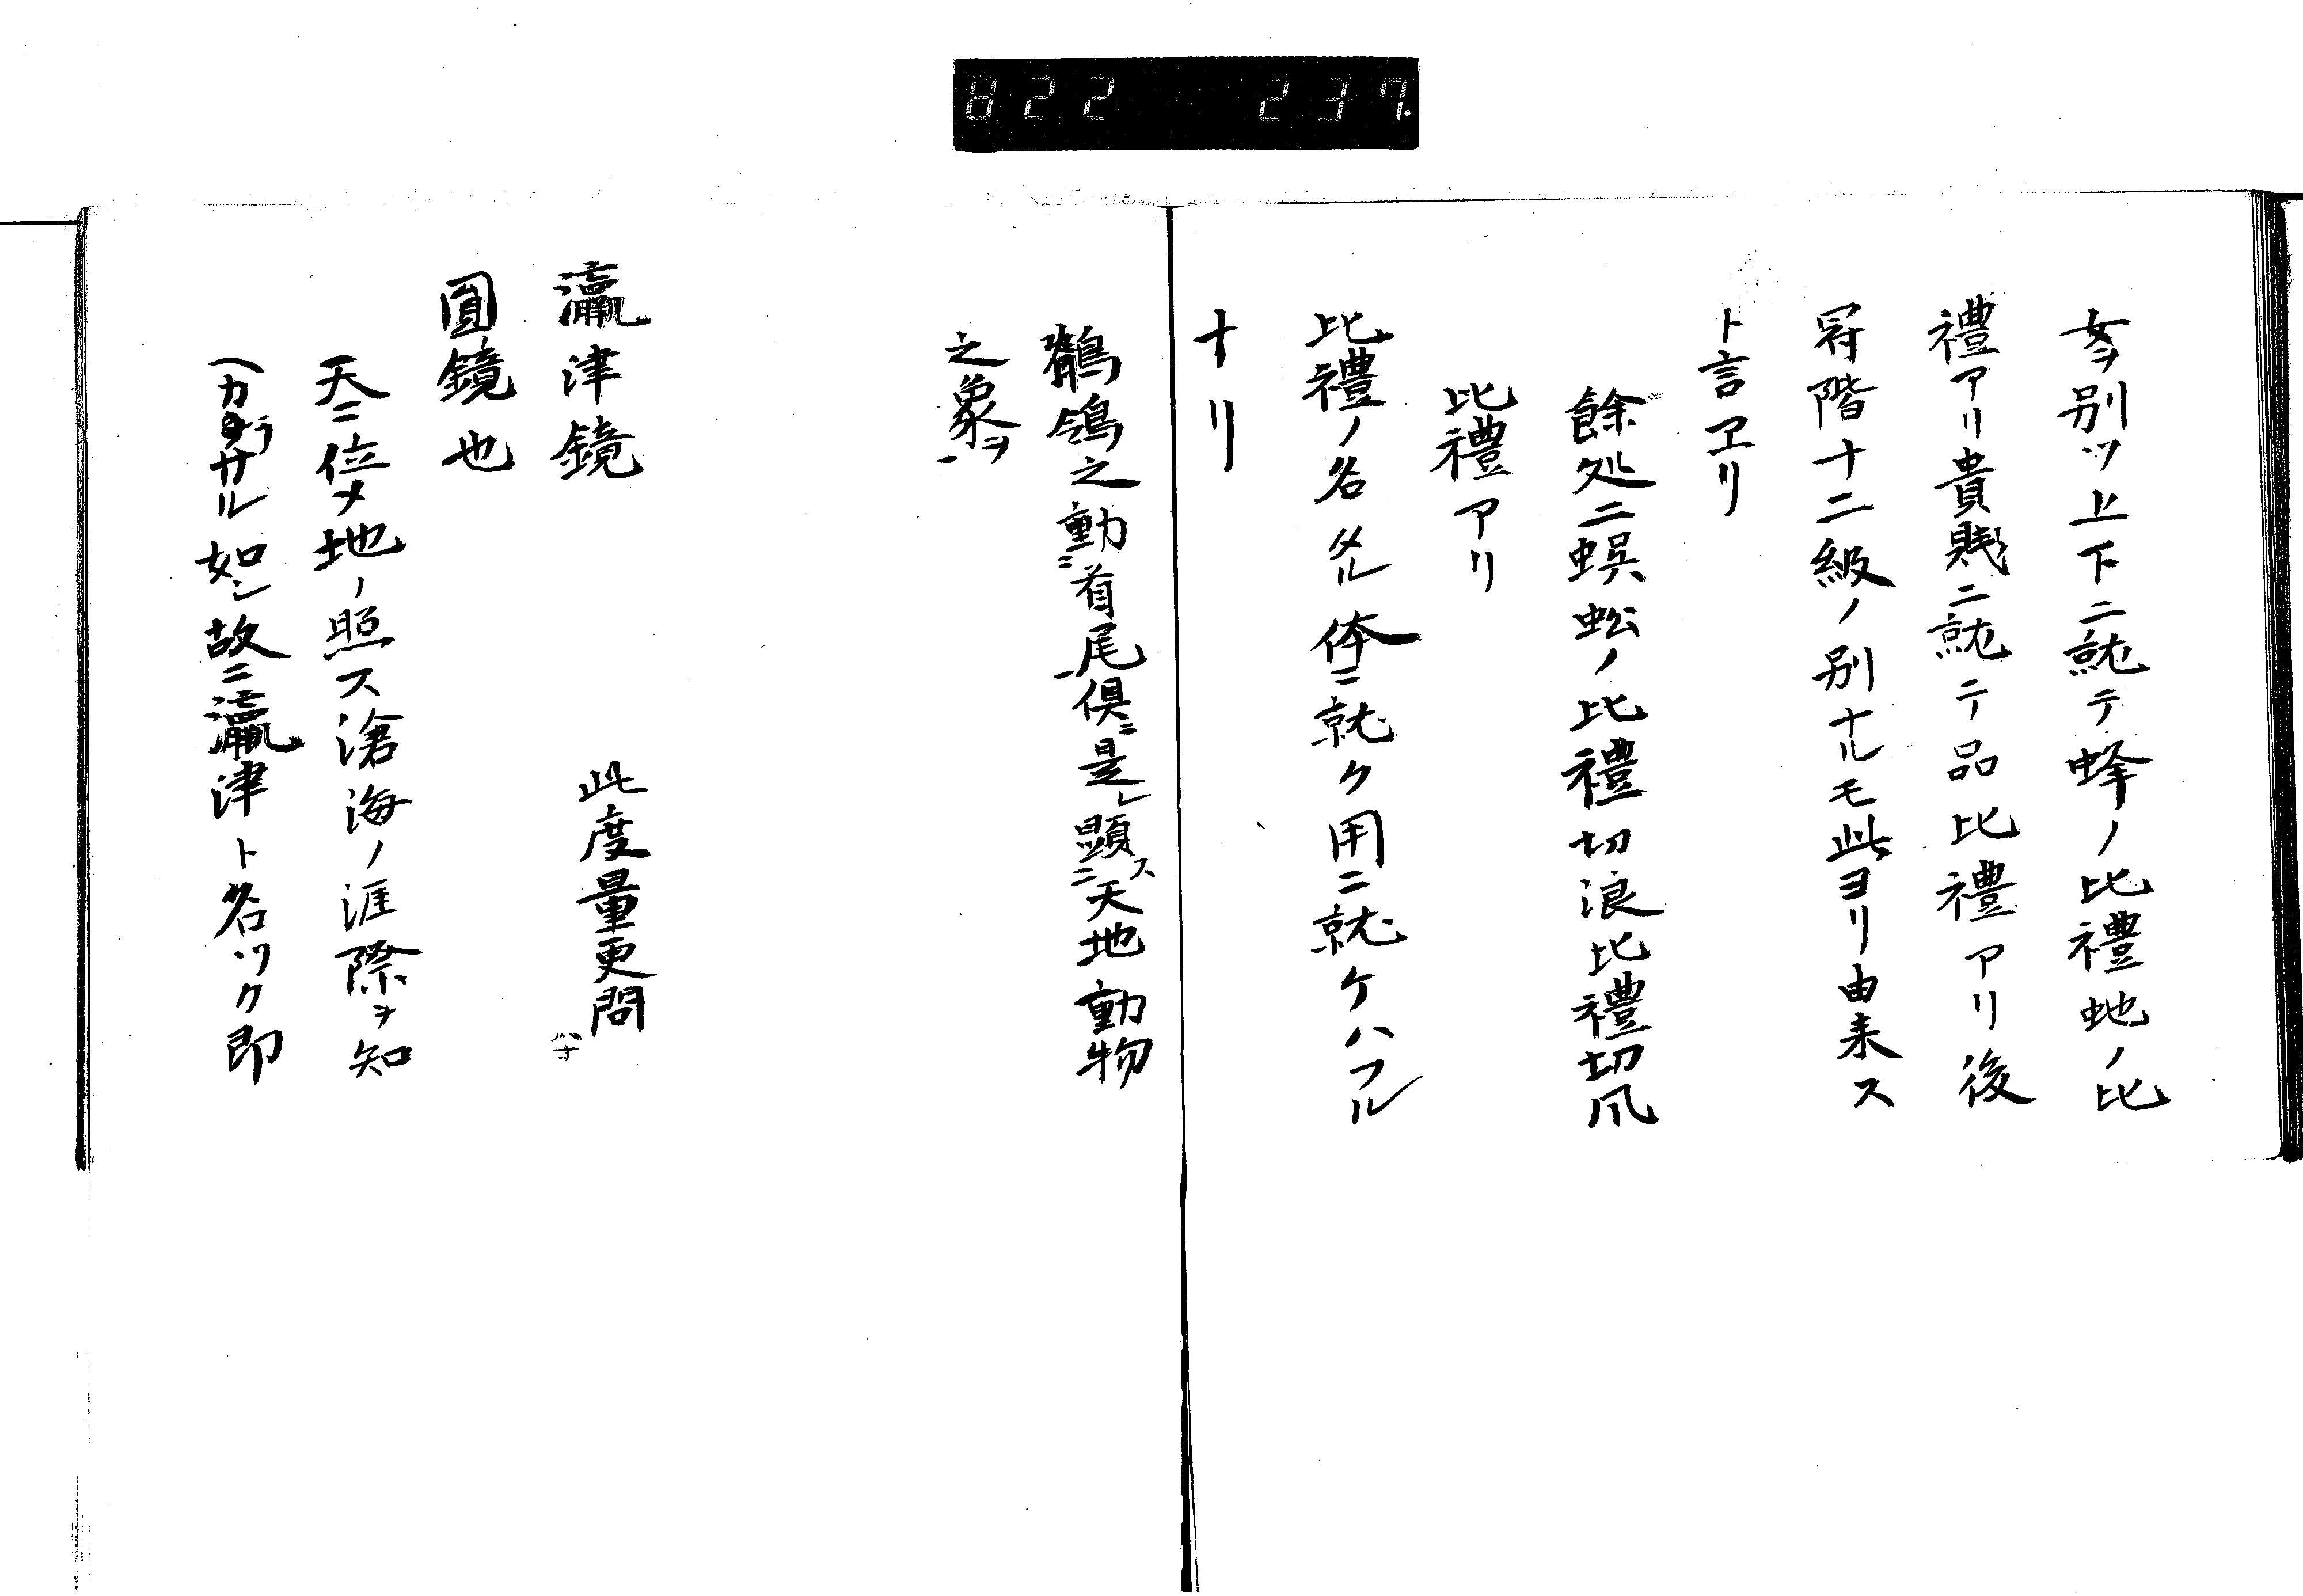 822 237.
女ヲ別ツ上下ニ就テ蜂ノ比禮虵ノ比
禮アリ貴賎ニ就テ品比禮アリ後
冠階十二級ノ別ナルモ此ヨリ由来ス
ト言ヱリ
餘処ニ蜈蚣ノ比禮切浪比禮切風
比禮アリ
比禮ノ名タル体ニ就ク用ニ就ケハフル
ナリ
鶺鴒之動ニ首尾倶ニ是レ顕ス二天地動物
之象ヲ一
瀛津鏡 此度量更問
圓鏡也
天ニ位メ地ノ照ス滄海ノ涯際ヲ知
ヘカラサル如シ故ニ瀛津ト名ツク即